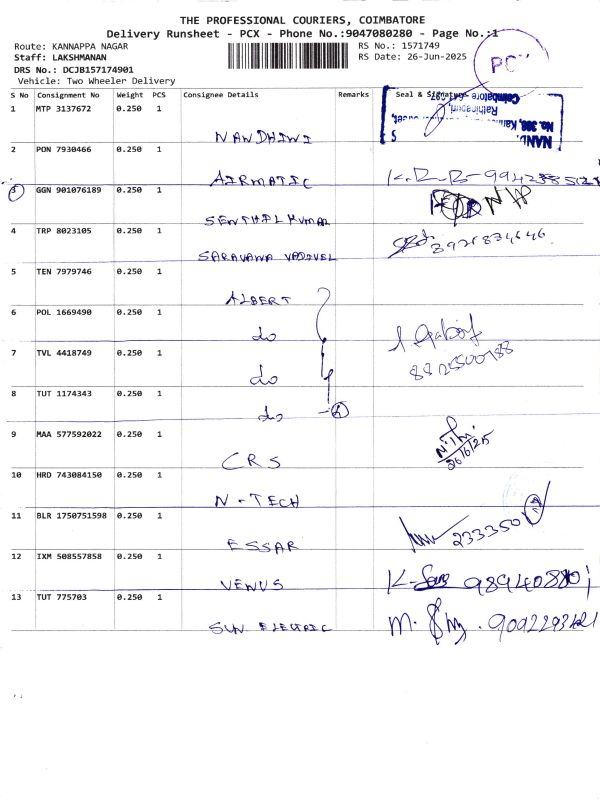 THE PROFESSIONAL COURIERS, COIMBATORE
Delivery Runsheet - PCX - Phone No.:9047080280 - Page No.:1
Route: KANNAPPA NAGAR
RS No.: 1571749
Staff: LAKSHMANAN
RS Date: 26-Jun-2025
DRS No.: DCJB157174901
Vehicle: Two Wheeler Delivery
S No Consignment No Weight PCS Consignee Details Remarks Seal & Signature
1 MTP 3137672 0.250 1
NANDHINI
2 PON 7930466 0.250 1
AIRMATIC
GGN 901076189 0.250 1
SENTHIL KUMAR
4 TRP 8023105 0.250 1
SARAVANA VADIVEL
5 TEN 7979746 0.250 1
ALBERT
6 POL 1669490 0.250 1
do
7 TVL 4418749 0.250 1
do
8 TUT 1174343 0.250 1
do
9 MAA 577592022 0.250 1
26/6/25
CRS
10 HRD 743084150 0.250 1
N-TECH
11 BLR 1750751598 0.250 1
233350
ESSAR
12 IXM 508557858 0.250 1
VENUS
13 TUT 775703 0.250 1
SUN ELECTRIC